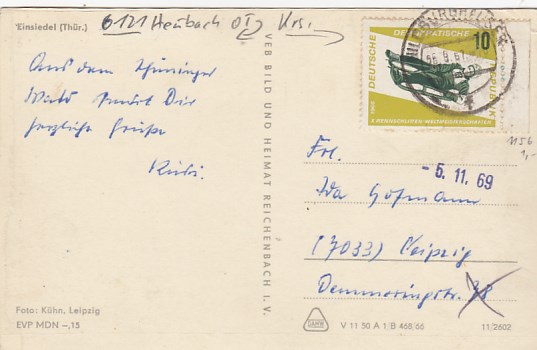 Einsiedel (Thür.)
6121 Heubach
Aus dem Thüringer
Wald sendet Dir
herzliche Grüße
Rudi.
VEB BILD UND HEIMAT REICHENBACH I. V.
DEUTSCHE DEMOKRATISCHE REPUBLIK
10
1966
X. RENNSCHLITTEN-WELTMEISTERSCHAFTEN
1156
1,-
Frl.
- 5. 11. 69
Ida Hofmann
(7033) Leipzig
Demmeringstr.
Foto: Kühn, Leipzig
EVP MDN –,15
V 11 50 A 1/B 468/66
11/2602